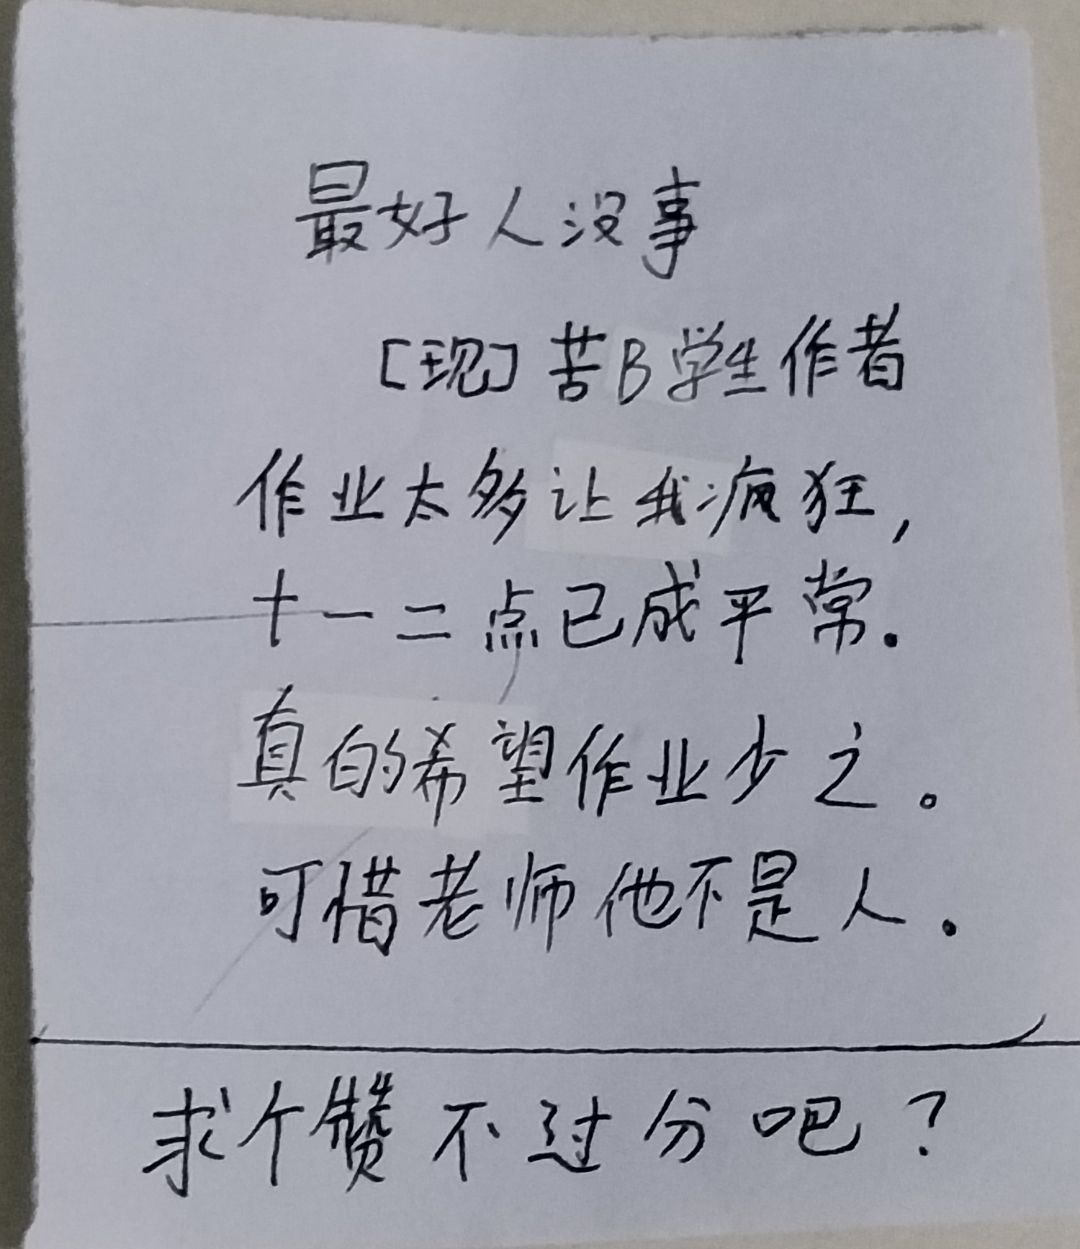 最好人没事
[现]苦B学生作者
作业太多让我疯狂,
十一二点已成平常.
真的希望作业少之。
可惜老师他不是人.
求个赞不过分吧?